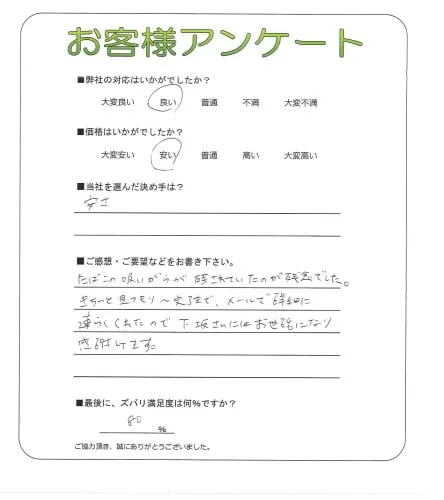 お客様アンケート
■弊社の対応はいかがでしたか?
大変良い 良い 普通 不満 大変不満
■価格はいかがでしたか?
大変安い 安い 普通 高い 大変高い
■当社を選んだ決め手は?
安さ
■ご感想・ご要望などをお書き下さい。
たばこの吸いがらが残されていたのが残念でした。
きちっと見つもり〜完了まで、メールで詳細に
連らくくれたので下坂さんにはお世話になり
感謝してます。
■最後に、ズバリ満足度は何%ですか?
80 %
ご協力頂き、誠にありがとうございました。